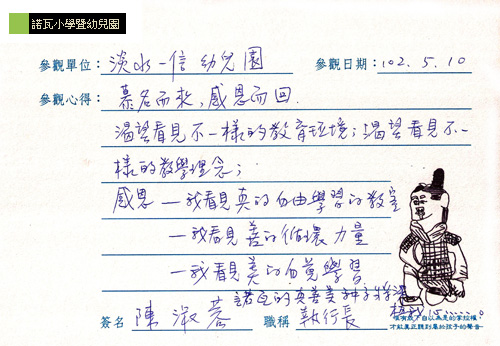 諾瓦小學暨幼兒園
參觀單位：淡水一信幼兒園 參觀日期：102. 5. 10
參觀心得：慕名而來，感恩而回.
渴望看見不一樣的教育環境；渴望看見不一
樣的教學理念；
感恩 — 我看見真的自由學習的教室
— 我看見善的循環力量
— 我看見美的自覺學習.
諾瓦的真善美神子將深
植我心......
簽名 陳淑蓉 職稱 執行長
唯有放下自以為是的掌控權，
才能真正聽到屬於孩子的聲音